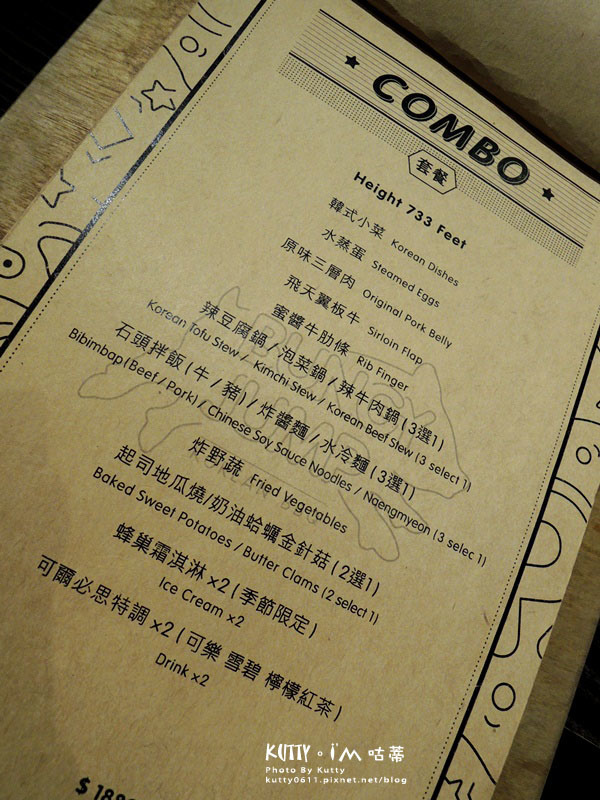 COMBO
套餐
Height 733 Feet
韓式小菜 Korean Dishes
水蒸蛋 Steamed Eggs
原味三層肉 Original Pork Belly
飛天翼板牛 Sirloin Flap
蜜醬牛肋條 Rib Finger
辣豆腐鍋/泡菜鍋/辣牛肉鍋(3選1)
Korean Tofu Stew / Kimchi Stew / Korean Beef Stew (3 select 1)
石頭拌飯(牛/豬)/炸醬麵/水冷麵(3選1)
Bibimbap(Beef/Pork)/ Chinese Soy Sauce Noodles / Naengmyeon (3 selec 1)
炸野蔬 Fried Vegetables
起司地瓜燒/奶油蛤蠣金針菇(2選1)
Baked Sweet Potatoes / Butter Clams (2 select 1)
蜂巢霜淇淋 ×2 (季節限定)
Ice Cream ×2
可爾必思特調 ×2 (可樂 雪碧 檸檬紅茶)
Drink ×2
BUNGY
JUMP
KUTTY。i'm 咕蒂
Photo By Kutty
kutty0611.pixnet.net/blog